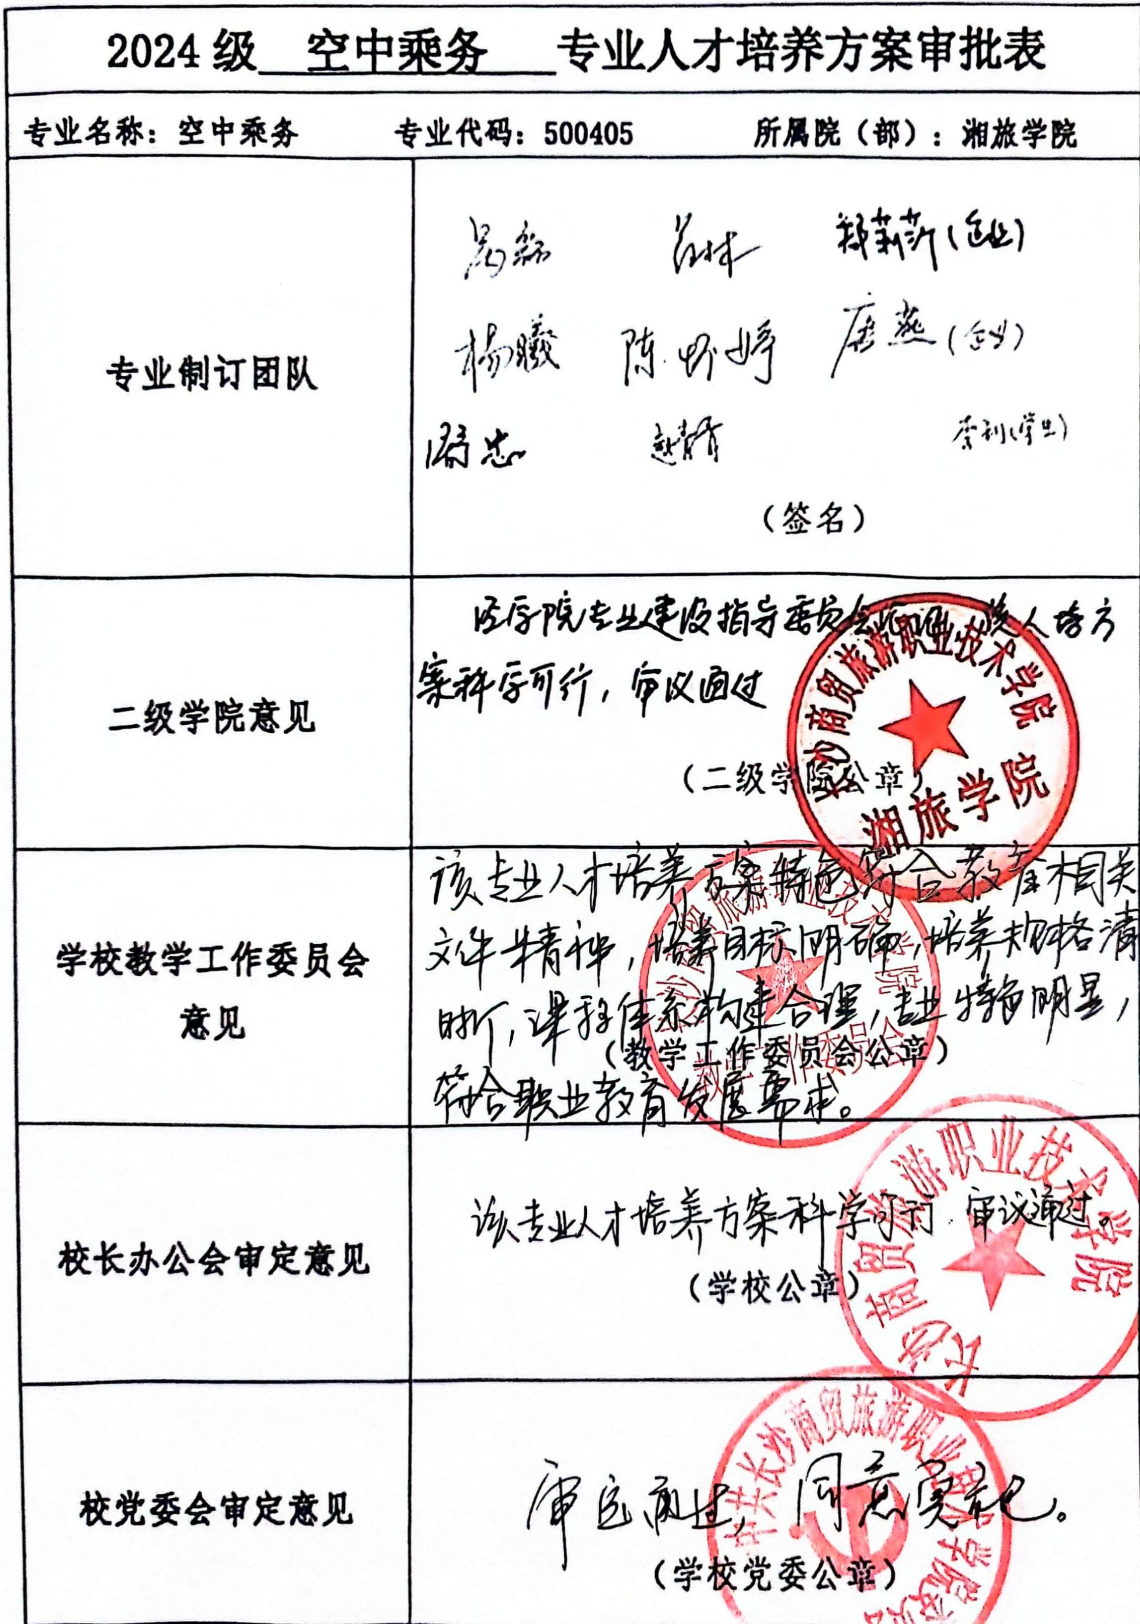 2024级 空中乘务 专业人才培养方案审批表
专业名称：空中乘务 专业代码：500405 所属院（部）：湘旅学院
专业制订团队
郑莉莎（企业）
杨曦 陈 婷 唐燕（企业）
周忠 赵青青 李利（学生）
（签名）
二级学院意见
经学院专业建设指导委员会论证，该人培方
案科学可行，审议通过
（二级学院公章）
长沙商贸旅游职业技术学院
湘旅学院
学校教学工作委员会
意见
该专业人才培养方案特色符合教育相关
文件精神，培养目标明确，培养规格清
晰，课程体系构建合理，专业特色明显，
（教学工作委员会公章）
符合职业教育发展需求。
长沙商贸旅游职业技术学院
教学工作委员会
校长办公会审定意见
该专业人才培养方案科学可行 审议通过。
（学校公章）
长沙商贸旅游职业技术学院
校党委会审定意见
审定通过，同意实施。
（学校党委公章）
中共长沙商贸旅游职业技术学院委员会